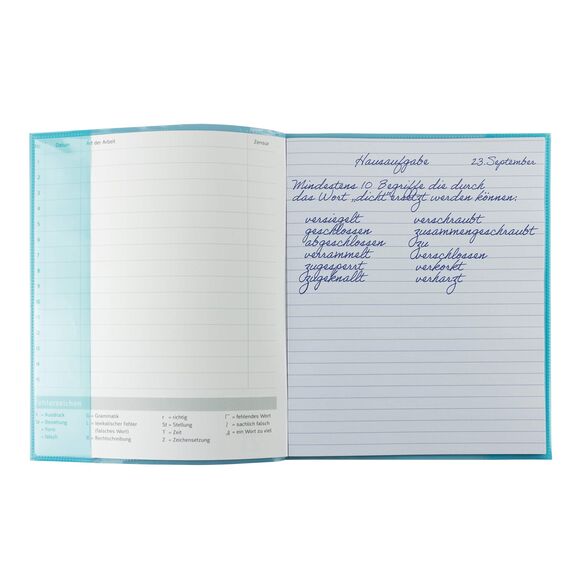 Nr. Datum Art der Arbeit Zensur
1
2
3
4
5
6
7
8
9
10
11
12
13
14
15
Fehlerzeichen
A = Ausdruck G = Grammatik r = richtig Γ = fehlendes Wort
Bz = Beziehung L = lexikalischer Fehler St = Stellung ʃ = sachlich falsch
= Form (falsches Wort) T = Zeit = ein Wort zu viel
= falsch R = Rechtschreibung Z = Zeichensetzung
Hausaufgabe 23. September
Mindestens 10 Begriffe die durch
das Wort „dicht" ersetzt werden können:
versiegelt verschraubt
geschlossen zusammengeschraubt
abgeschlossen zu
verrammelt verschlossen
zugesperrt verkorkt
zugeknallt verharzt